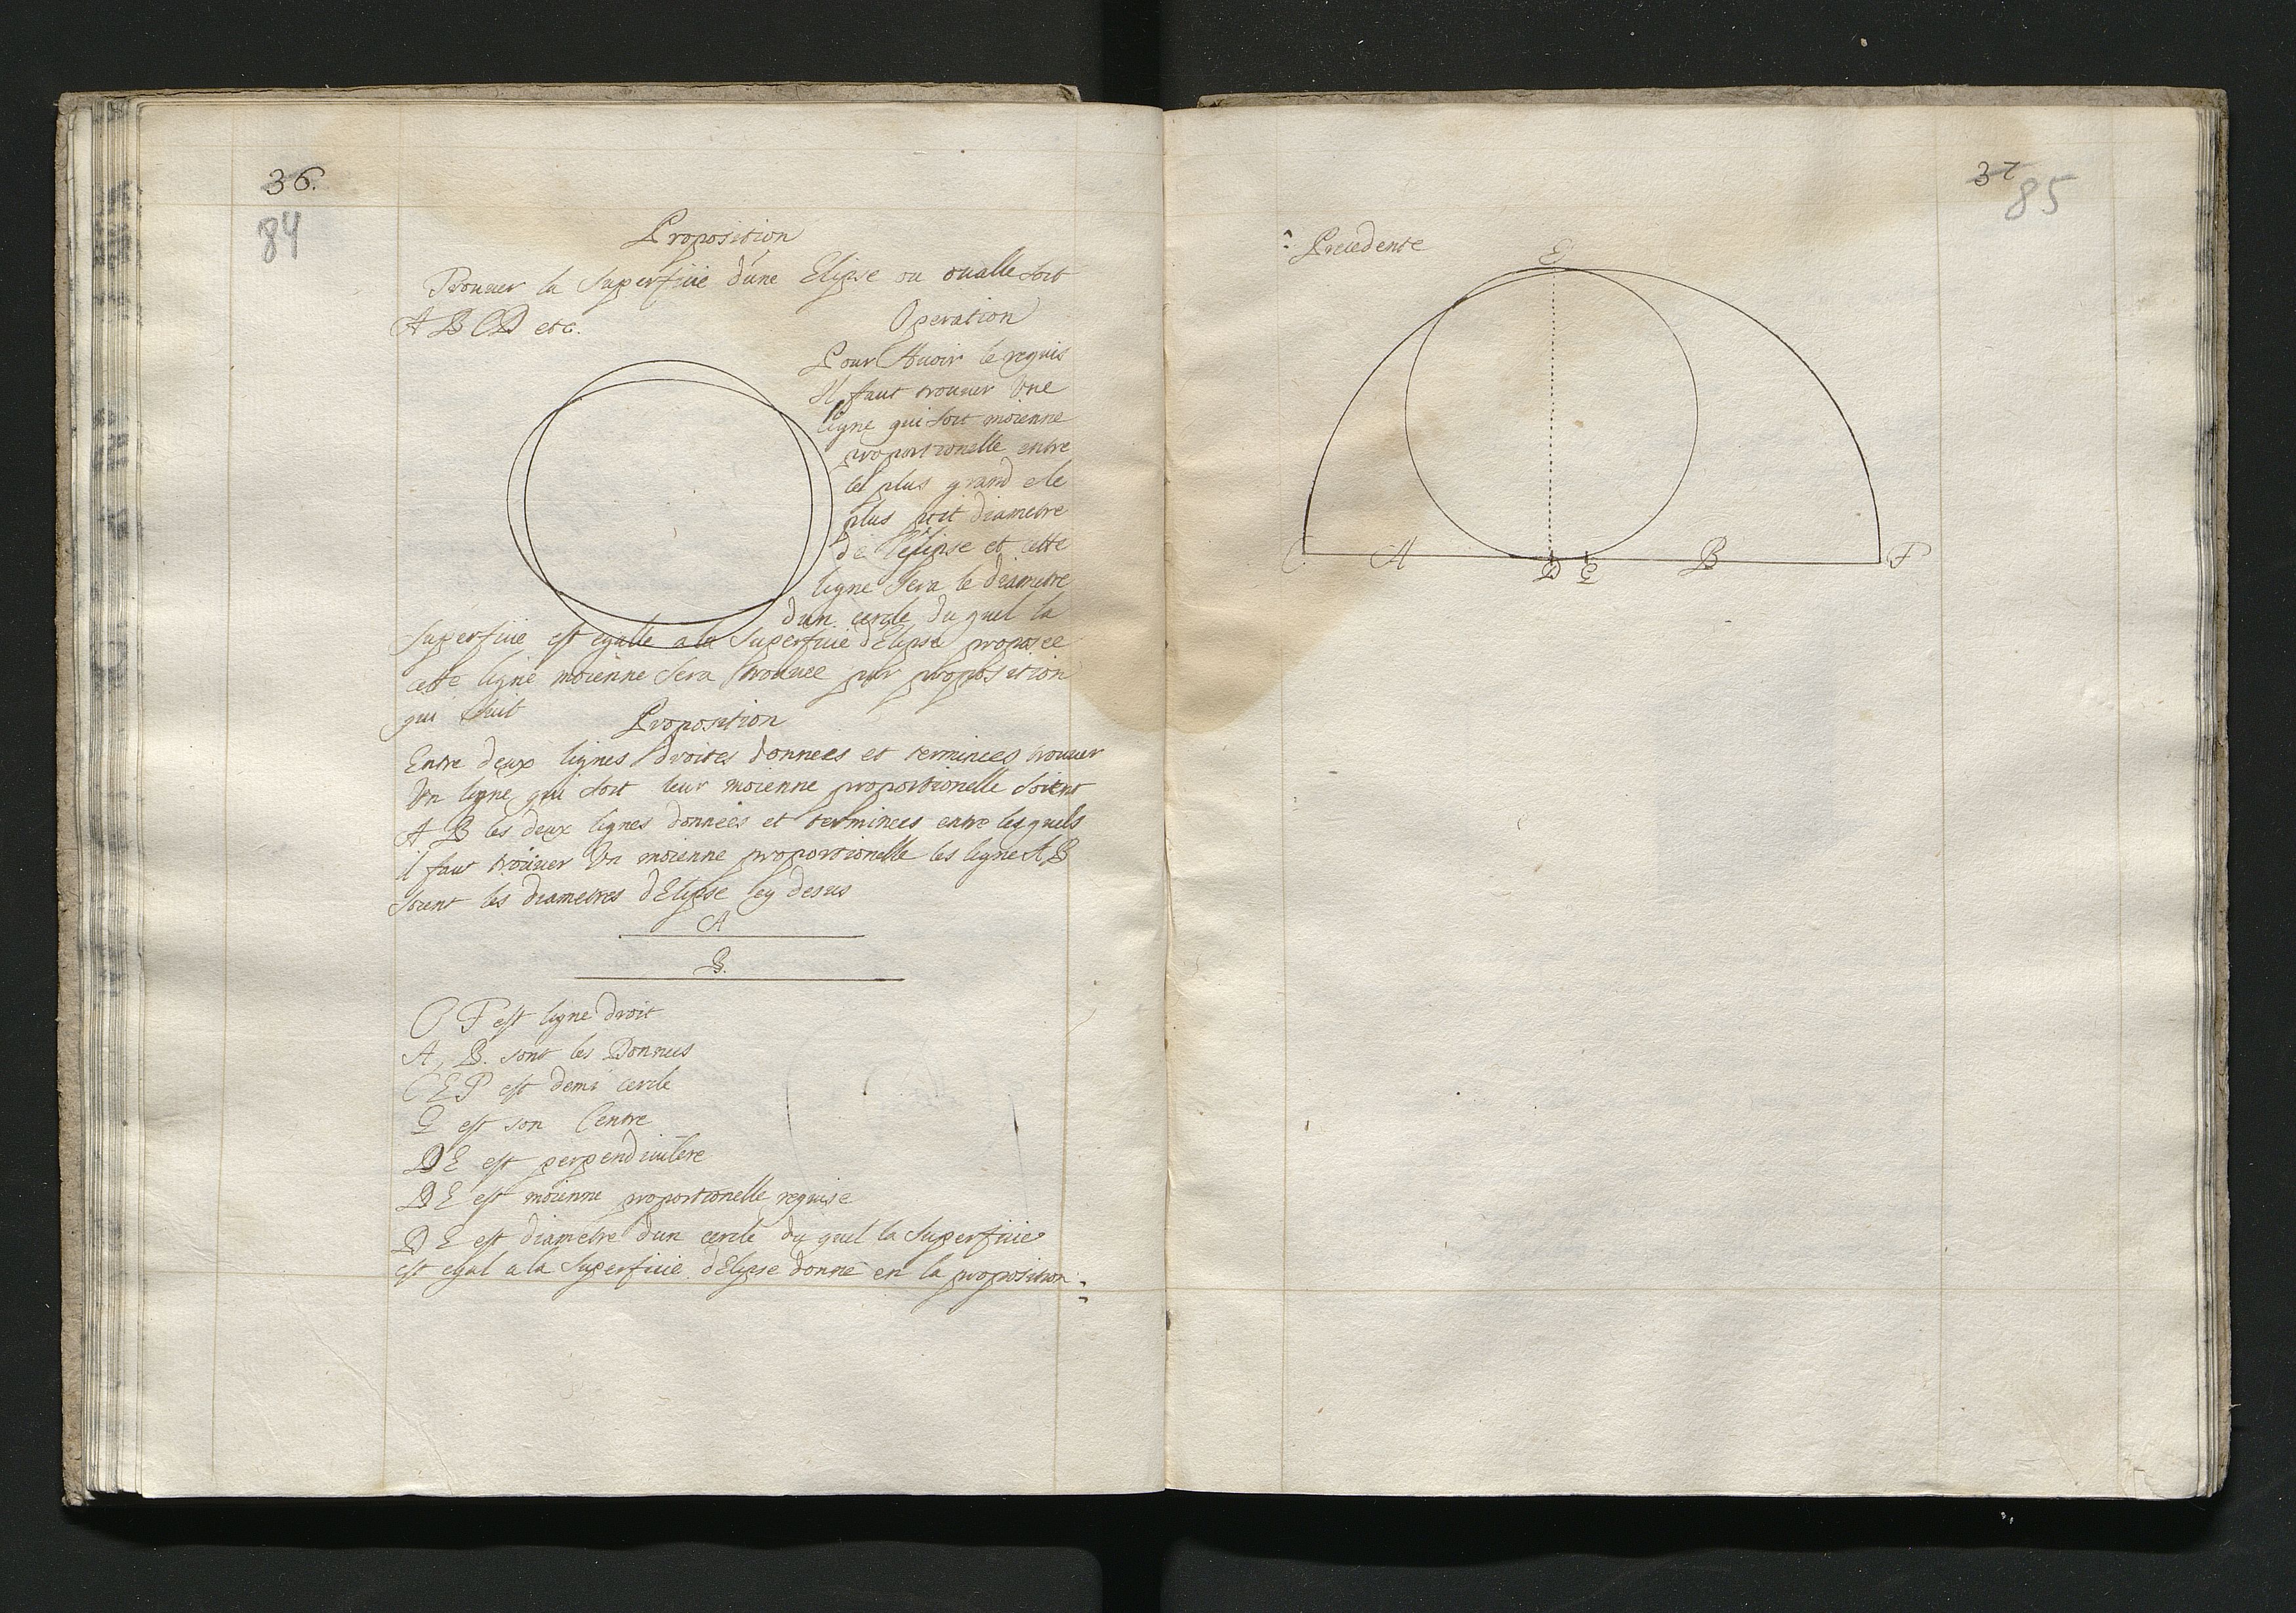 36.
84
Proposition
Trouuer la Superficie d'une Elipse ou oualle soit
A B C D etc.
Operation
Pour Auoir le requis
Il faut trouuer Une
ligne qui soit moienne
proportionelle entre
le plus grand e le
plus petit diametre
de l'elipse et cette
ligne Sera le diametre
d'un cercle du quel la
Superficie est egalle a la Superficie d'Elipse proposee
cette ligne moienne Sera trouuee par proposition
qui Suit
Proposition
Entre deux lignes droites donnees et terminees trouuer
Un ligne qui soit leur moienne proportionelle soient
A B les deux lignes donnees et terminees entre lesquels
il faut trouuer Un moienne proportionelle les ligne A B
soient les diametres d'Elipse cy desus
A
B.
C F est ligne droit
A, B. sont les Donnees
C E F est demi cercle
G est son Centre
D E est perpendiculere
D E est moienne proportionelle requise
D E est diametre d'un cercle du quel la Superficie
est egal a la Superficie d'Elipse donne en la proposition :
37
85
: Precedente
E
C A D G B F